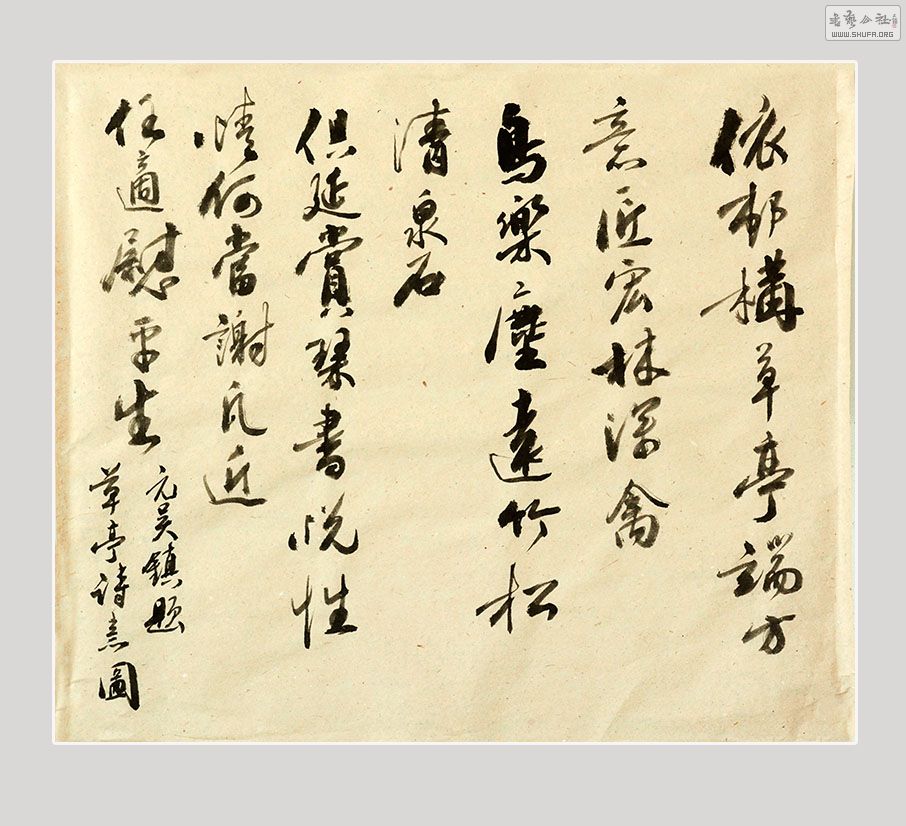 依邨構草亭端方
意匠宏林深禽
鳥樂塵遠竹松
清泉石
供延賞琴書悦性
情何當謝凡近
任適慰平生
元吴鎮題
草亭詩意圖
書藝公社
WWW.SHUFA.ORG